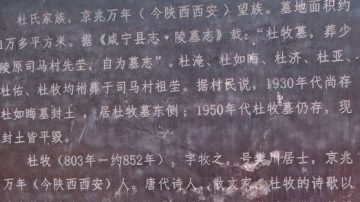 杜氏家族，京兆万年（今陕西西安）望族。墓地面积约
1万多平方米。据《咸宁县志·陵墓志》载：“杜牧墓，葬少
陵原司马村先茔，自为墓志”。杜淹、杜如晦、杜济、杜亚、
杜佑、杜牧均袝葬于司马村祖茔。据村民说，1930年代尚存
杜如晦墓封土，居杜牧墓东侧；1950年代杜牧墓仍存，现
封土皆平毁。
杜牧（803年—约852年），字牧之，号樊川居士，京兆
万年（今陕西西安）人。唐代诗人、散文家。杜牧的诗歌以